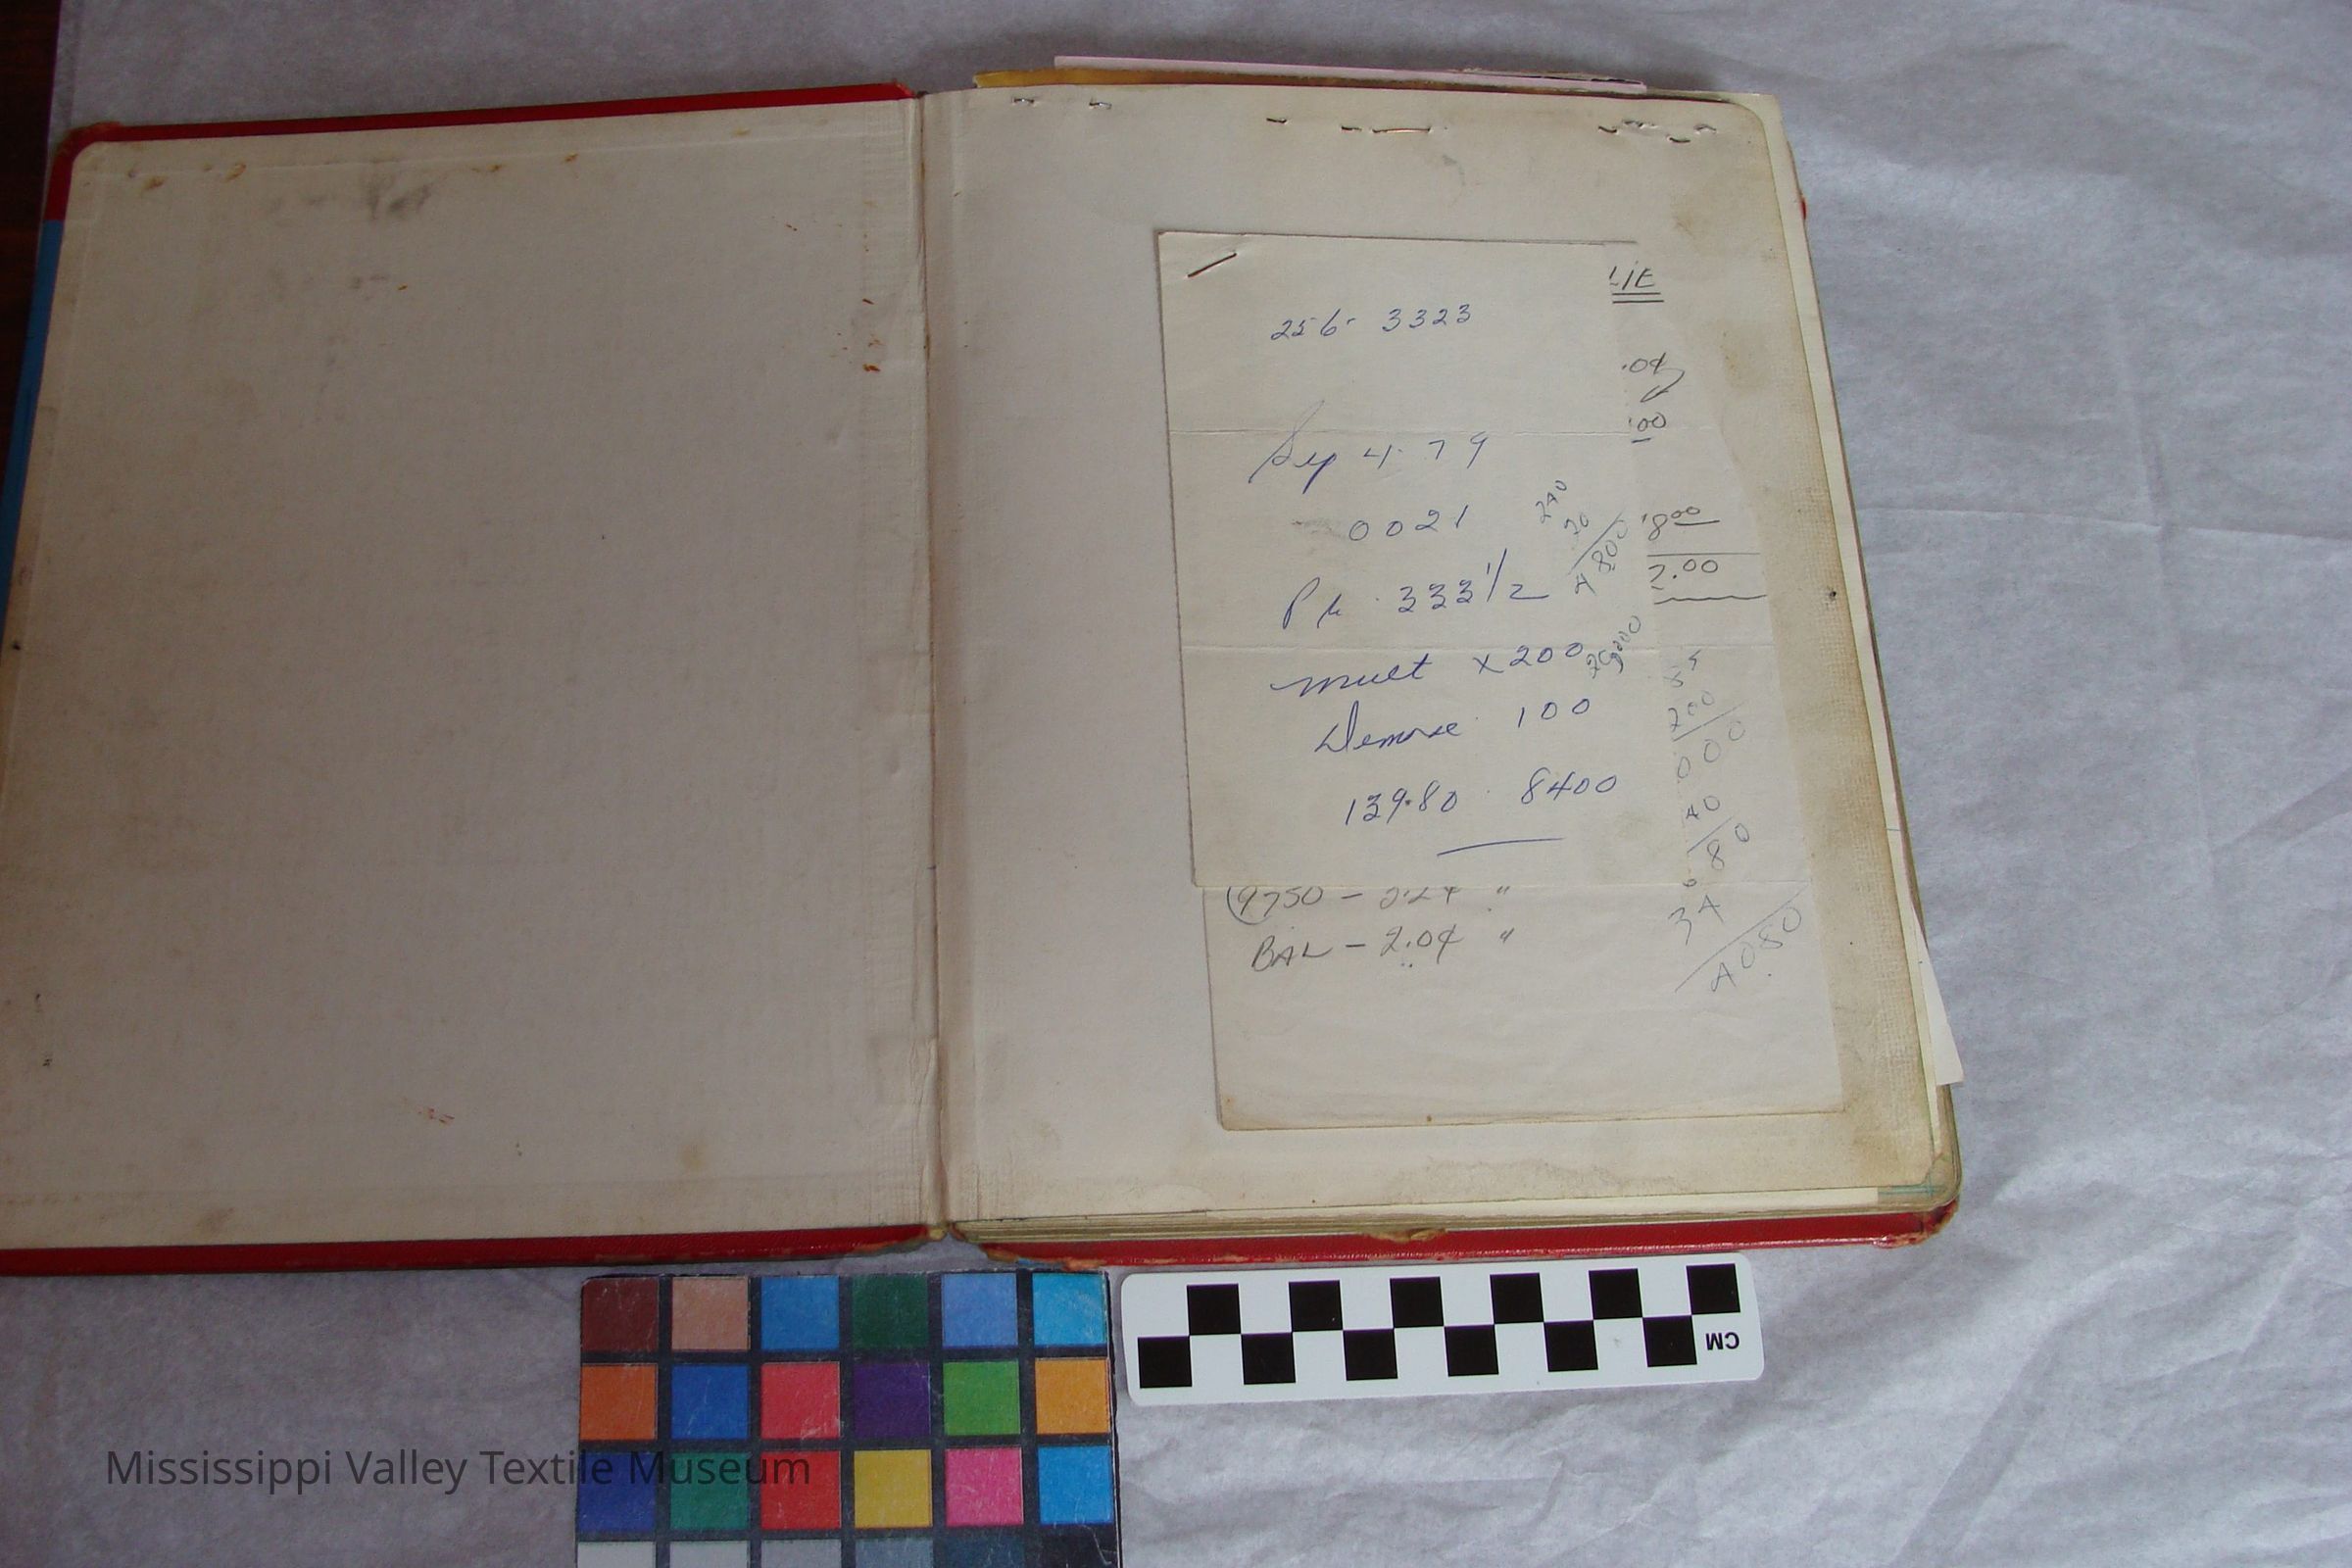 256-3323
Sep 4. 79
0021
333 1/2
mult x 200
100
139.80 8400
240
20
4800
IE
.04
.00
8 00
7.00
200
000
40
80
34
4080
9750 - 2.24 "
BAL - 2.04 "
CM
Mississippi Valley Textile Museum